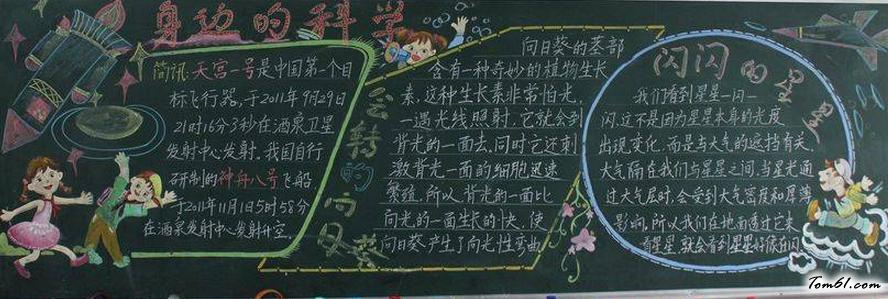 身边的科学
简讯:天宫一号是中国第一个目
标飞行器,于2011年9月29日
21时16分3秒在酒泉卫星
发射中心发射。我国自行
研制的神舟八号飞船,
于2011年11月1日5时58分
在酒泉发射中心发射升空。
会转的向日葵
向日葵的茎部
含有一种奇妙的植物生长
素,这种生长素非常怕光,
一遇光线照射,它就会到
背光的一面去,同时它还刺
激背光一面的细胞迅速
繁殖,所以,背光的一面比
向光的一面生长的快,使
向日葵产生了向光性弯曲
闪闪的星星
我们看到星星一闪一
闪,这不是因为星星本身的光度
出现变化,而是与大气的遮挡有关。
大气隔在我们与星星之间,当星光通
过大气层时,会受到大气密度和厚薄
影响。所以我们在地面透过它来
看星星,就会看到星星好像在闪
Tom61.com